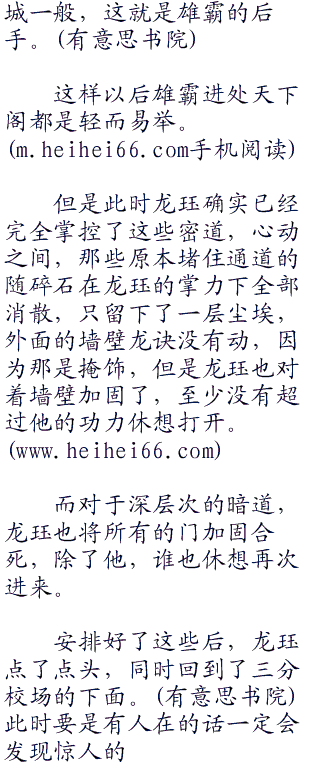 城一般，这就是雄霸的后
手。(有意思书院)
这样以后雄霸进处天下
阁都是轻而易举。
(m.heihei66.com手机阅读)
但是此时龙珏确实已经
完全掌控了这些密道，心动
之间，那些原本堵住通道的
随碎石在龙珏的掌力下全部
消散，只留下了一层尘埃，
外面的墙壁龙诀没有动，因
为那是掩饰，但是龙珏也对
着墙壁加固了，至少没有超
过他的功力休想打开。
(www.heihei66.com)
而对于深层次的暗道，
龙珏也将所有的门加固合
死，除了他，谁也休想再次
进来。
安排好了这些后，龙珏
点了点头，同时回到了三分
校场的下面。(有意思书院)
此时要是有人在的话一定会
发现惊人的